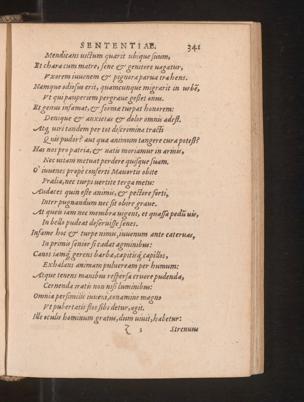 SENTENTIAE. 341
Mendicans victum quærit vbique suum,
Et chara cum matre, sene & genitore vagatur,
Vxorem iuuenem & pignora parua trahens.
Namque odiosus erit, quamcunque migrarit in vrbē,
Vt qui pauperiem pergraue gestet onus.
Et genus infamat, & forma turpat honorem:
Denique & anxietas & dolor omnis adest.
Atq; viri tandem per tot discrimina tracti
Quis pudor? aut qua animum tangere cura potest?
Has nos pro patria, & natis moriamur in armis,
Nec vitam metuat perdere quisque suam.
O' iuuenes prope conferti Mauortis obite
Prælia, nec turpi vertite terga metu:
Audaces quin este animis, & pectore forti,
Inter pugnandum nec sit obire graue.
At queis iam nec membra vigent, et quassa pedū vis,
In bello pudeat deseruisse senes.
Infame hoc & turpe nimis, iuuenum ante cateruas,
In primis senior si cadat agminibus:
Canis iamq́; gerens barba, capitisq́; capillos,
Exhalans animam pulueream per humum:
Atque tenens manibus respersa cruore pudenda,
Cernenda tratis non nisi luminibus:
Omnia persimilis iuuenis, conamine magno
Vt pubertatis flos sibi detur, agit.
Ille oculis hominum gratus, dum viuit, habetur:
ζ 3 Strenuus